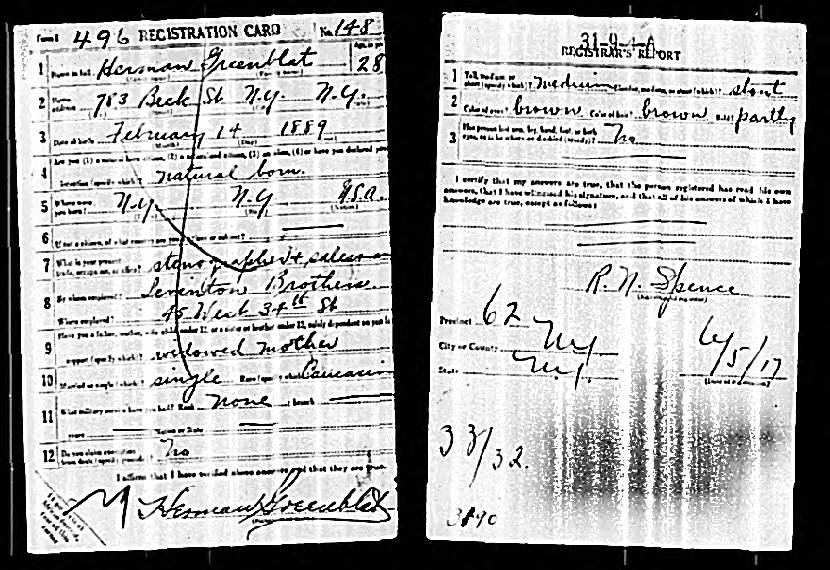 Form 1 496 REGISTRATION CARD No. 148
1 Name in full Herman Greenblat Age, in yrs 28
2 Home address 783 Beck St N.Y. N.Y.
3 Date of birth February 14 1889
(Month) (Day)
4 Are you (1) a natural born citizen, (2) a naturalized citizen, (3) an alien, (4) or have you declared your
intention (specify which)? natural born.
5 Where were you born? N.Y. N.Y. U.S.A.
6 If not a citizen, of what country are you a citizen or subject?
7 What is your present trade, occupation, or office? stenographer &
8 By whom employed? Brothers
Where employed? 45 West 34th St
9 Have you a father, mother, wife, child under 12, or a sister or brother under 12, solely dependent on you for
support (specify which)? widowed mother
10 Married or single (which)? single Race (specify which)? Caucasian
11 What military service have you had? Rank none branch
years Nation or State
12 Do you claim exemption from draft (specify grounds)? No
I affirm that I have verified above answers and that they are true.
Herman Greenblat
31-9-1-A
REGISTRAR'S REPORT
1 Tall, medium, or short (specify which)? medium Slender, medium, or stout (which)? stout
2 Color of eyes? brown Color of hair? brown Bald? partly
3 Has person lost arm, leg, hand, foot, or both eyes, or is he otherwise disabled (specify)? No
I certify that my answers are true, that the person registered has read his own
answers, that I have witnessed his signature, and that all of his answers of which I have
knowledge are true, except as follows:
R. N. Spence
(Signature of registrar)
Precinct 62
City or County NY
State N.Y. 6/5/17
(Date of registration)
33/32.